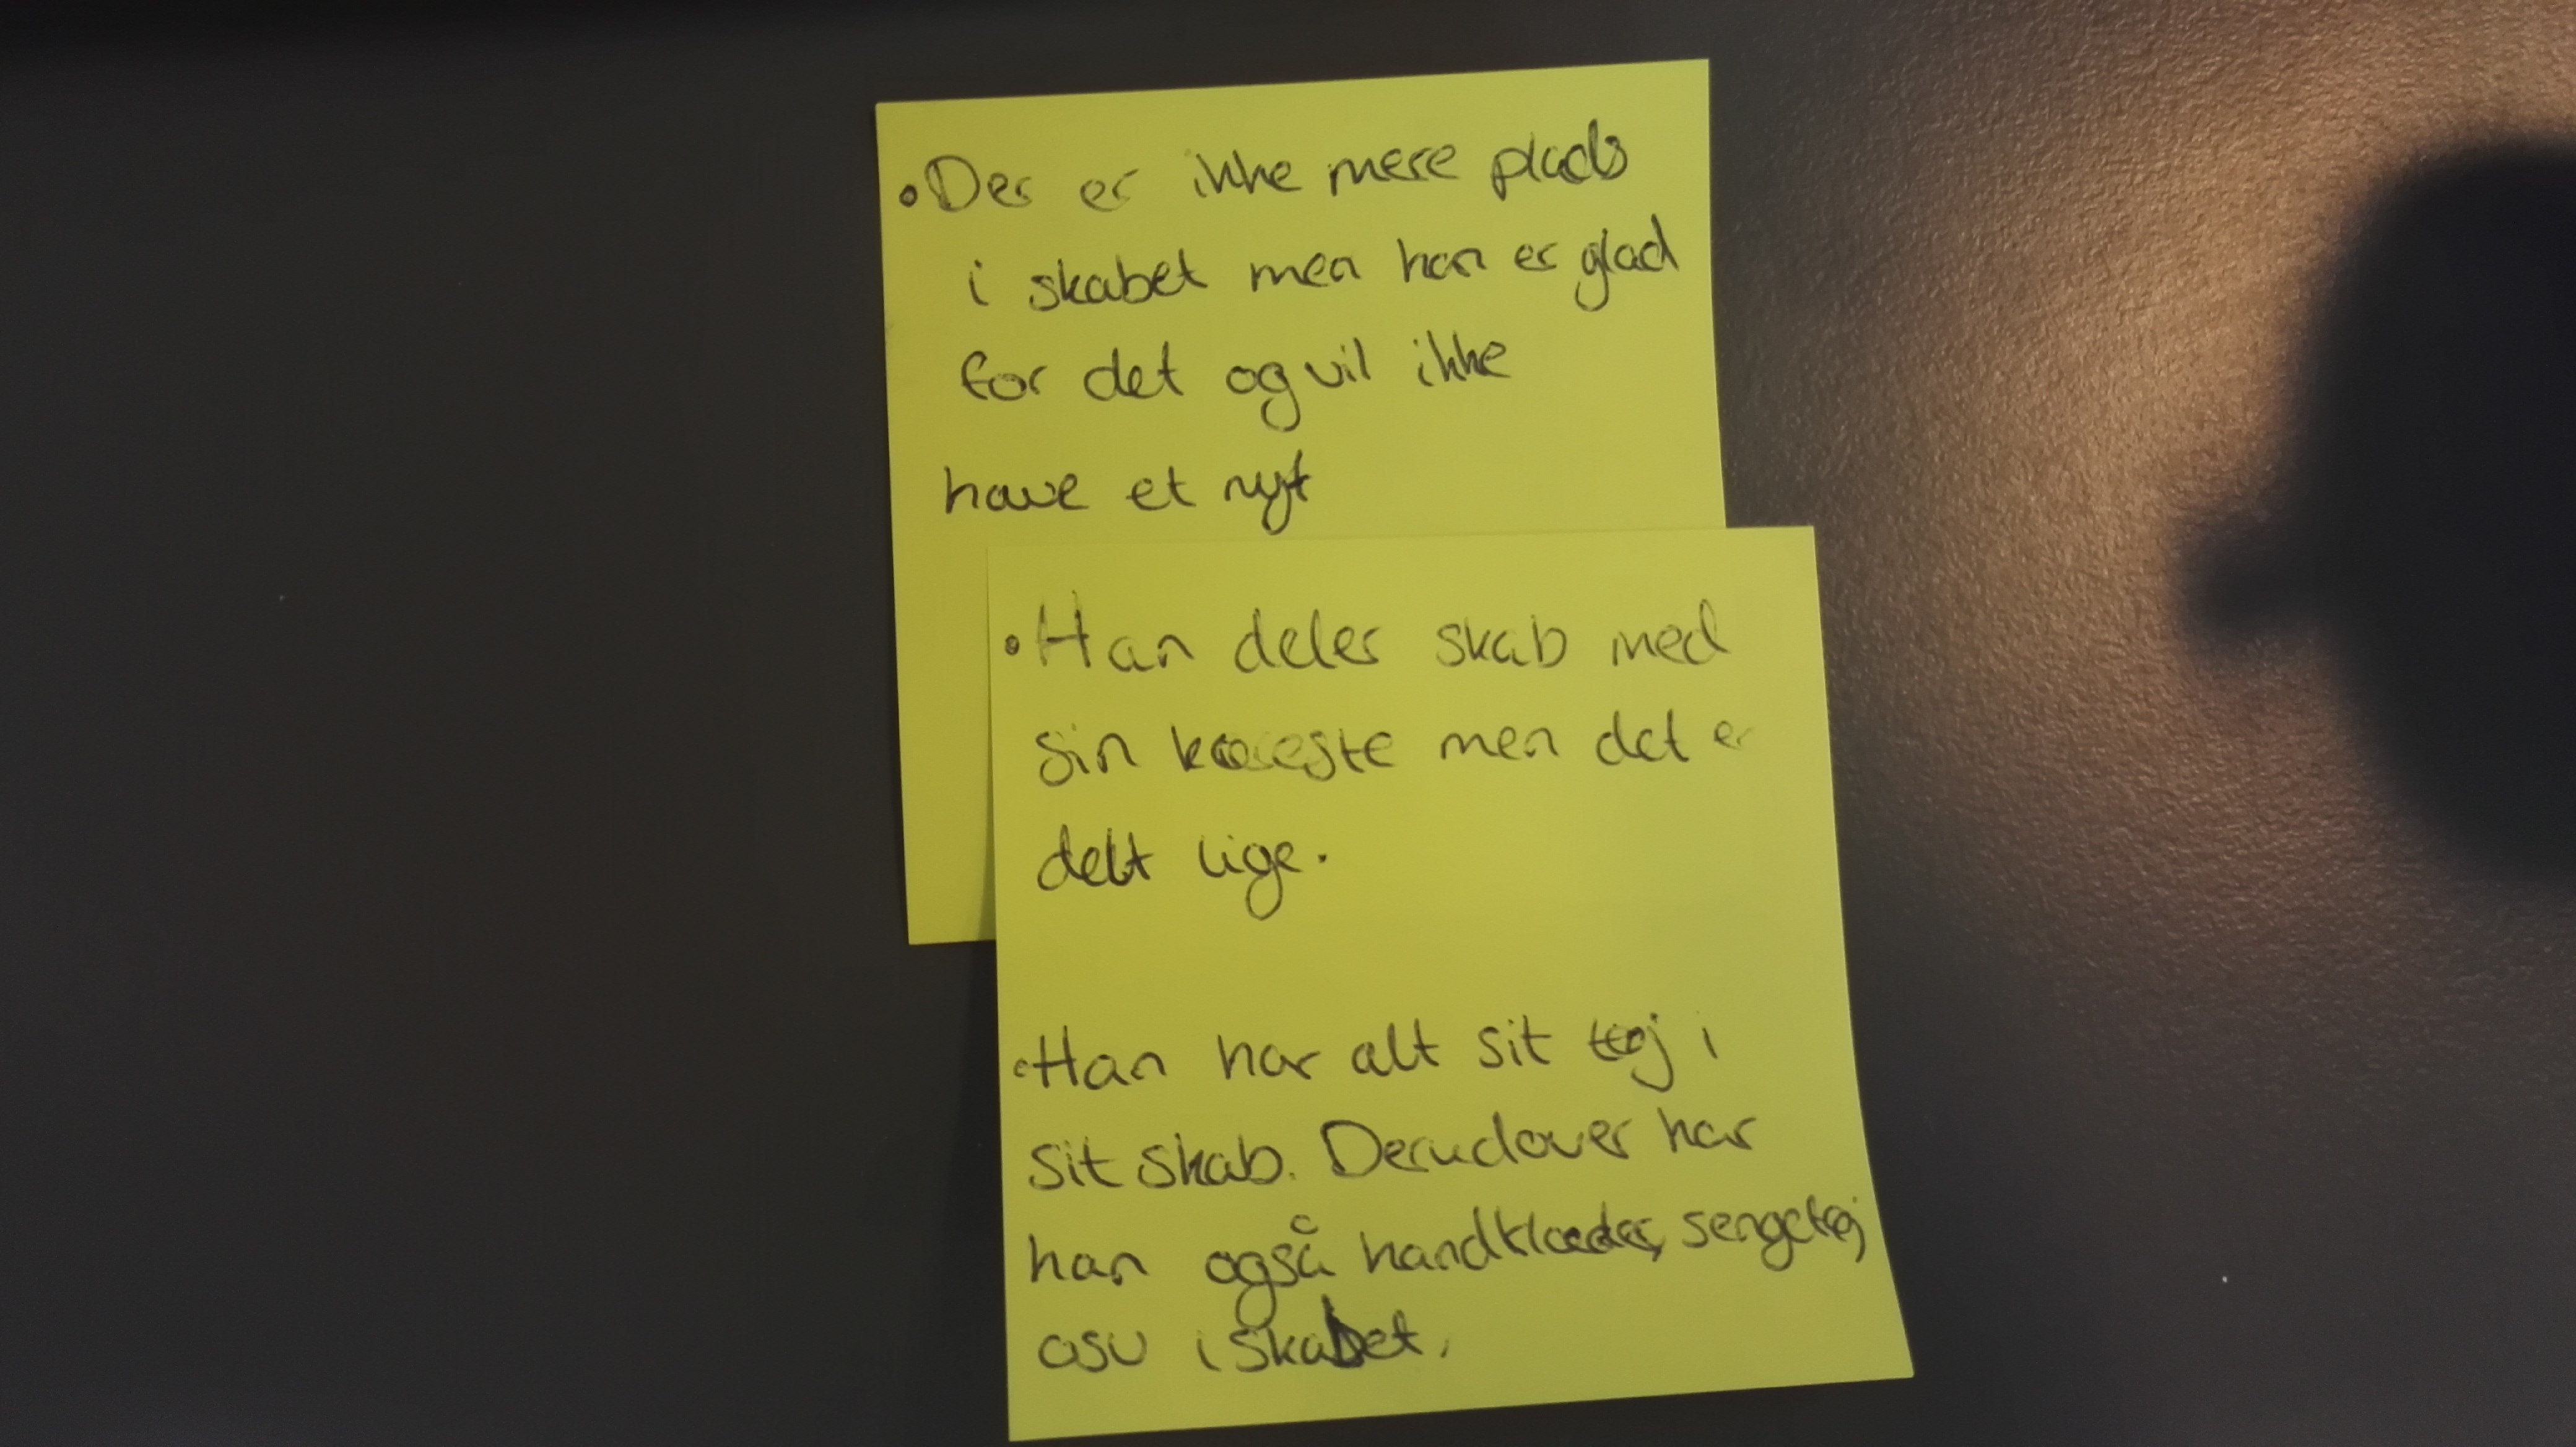 • Der er ikke mere plads
i skabet men han er glad
for det og vil ikke
have et nyt
• Han deler skab med
sin kæreste men det er
delt lige.
• Han har alt sit tøj i
sit skab. Derudover har
han også handklæder, sengetøj
osv i skabet.